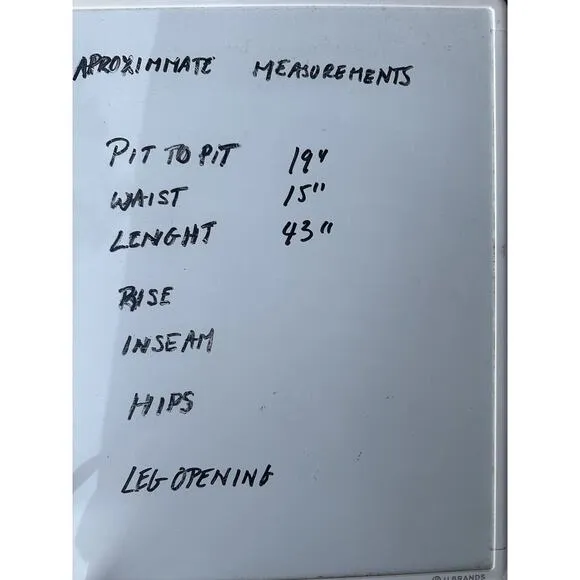 APROXIMMATE MEASUREMENTS
PIT TO PIT 19"
WAIST 15"
LENGHT 43"
RISE
INSEAM
HIPS
LEG OPENING
U BRANDS